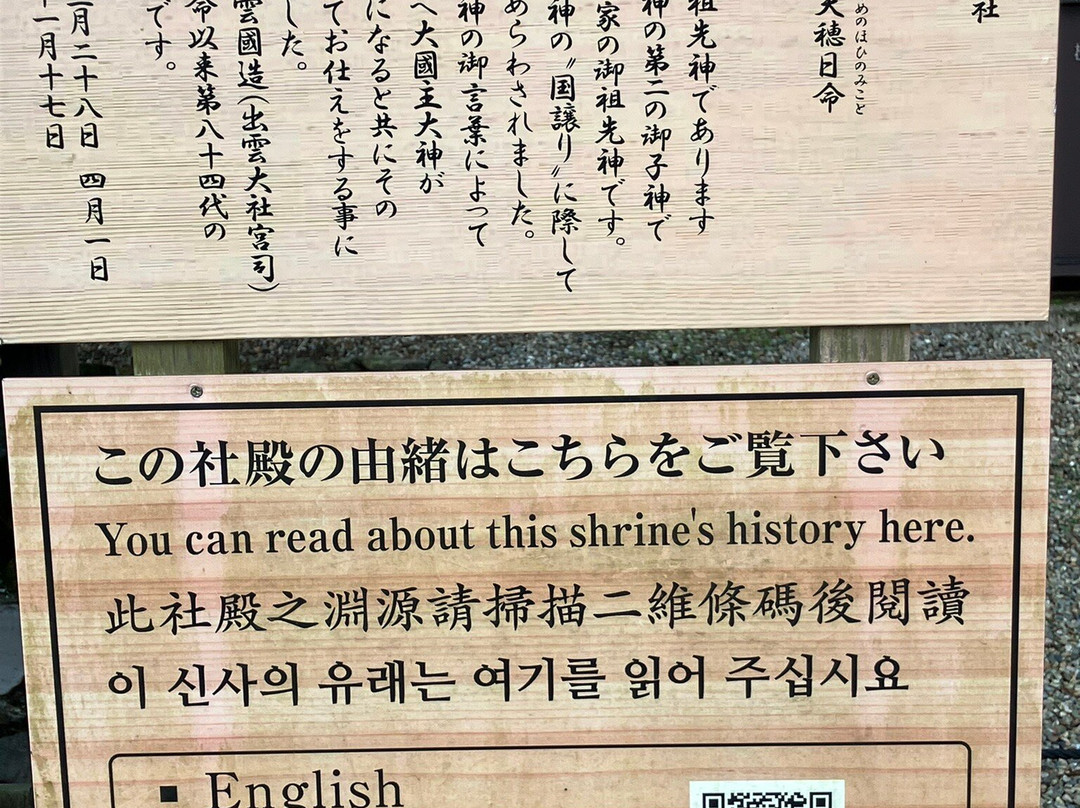 社
天穂日命
めのほひのみこと
祖先神であります
神の第二の御子神で
家の御祖先神です。
神の〝国譲り〟に際して
あらわされました。
神の御言葉によって
へ大國主大神が
になると共にその
てお仕えをする事に
した。
雲國造(出雲大社宮司)
命以来第八十四代の
です。
月二十八日 四月一日
十一月十七日
この社殿の由緒はこちらをご覧下さい
You can read about this shrine's history here.
此社殿之淵源請掃描二維條碼後閱讀
이 신사의 유래는 여기를 읽어 주십시요
■ English